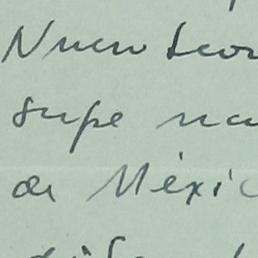 Nuevo Leon
supe na
de Méxic